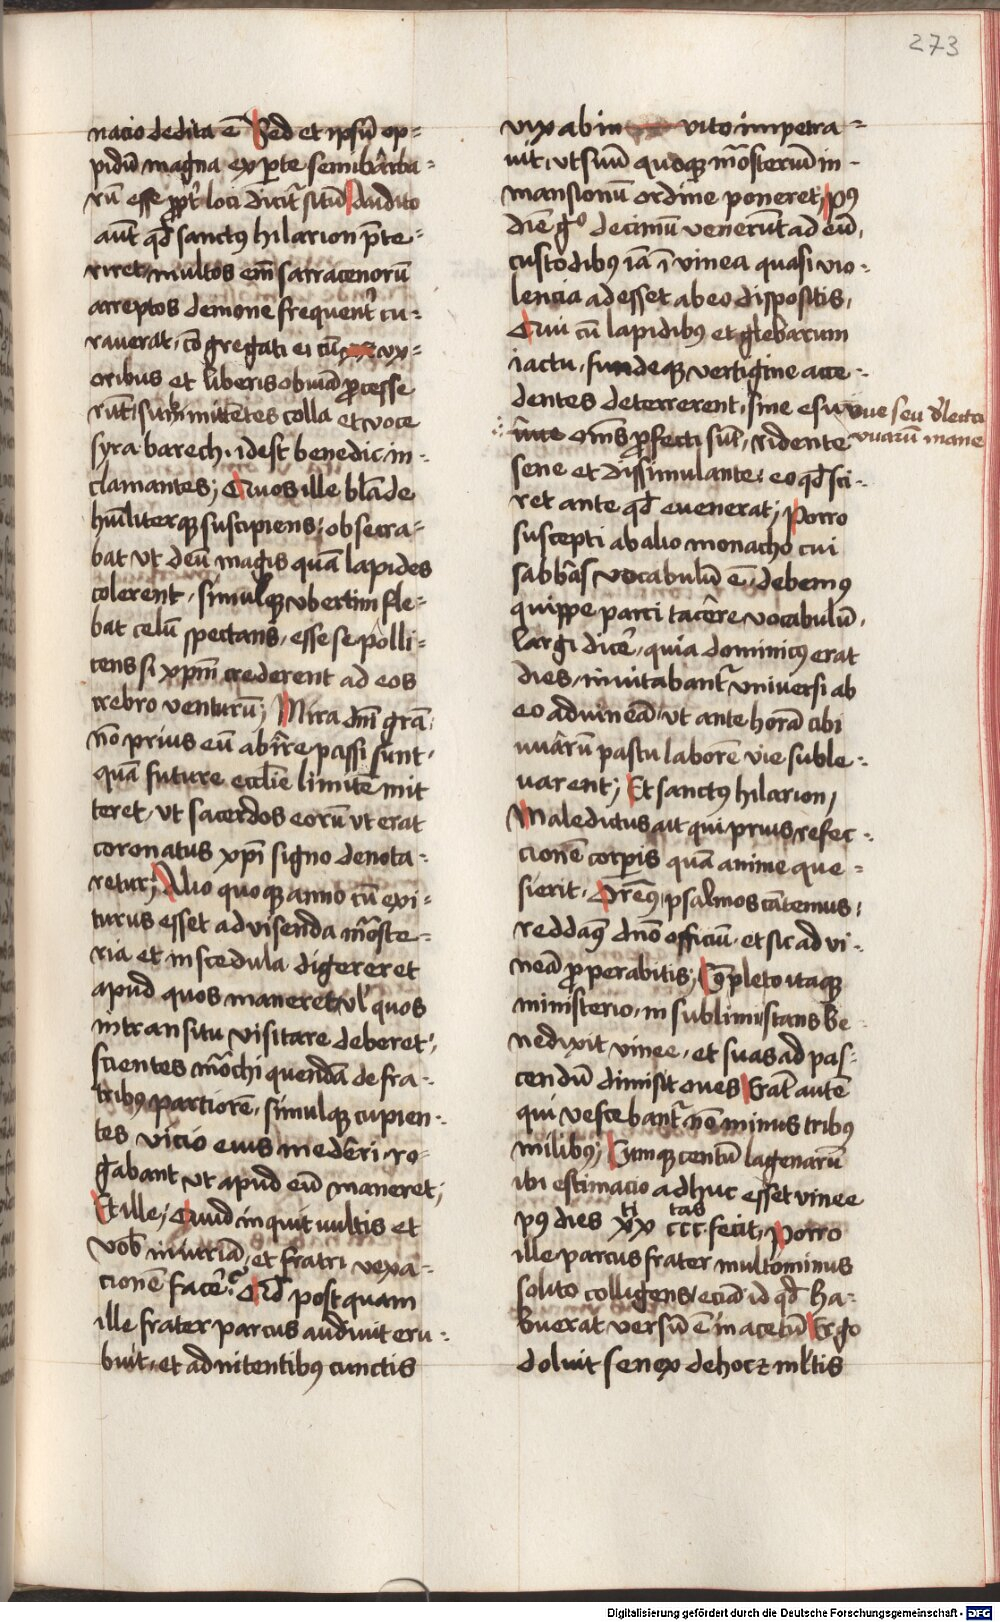 273
nacio dedita ē Sed et ipsū op=
pidū magna ex p̱te semibarba=
rū esse ꝓpt̾ loci dicit̾ sitū Audito
aūt qd̾ sanctꝯ hilarion p̄te=
riret, multos em̄ sarracenorū
arreptos demone frequent̾ cu=
rauerat, cōgregati ei cū vx=
oribus et liberis obuiā ꝓcesse
rūt, submittētes colla et voce
syra barech. idest benedic, in=
clamantes; Quos ille blāde
hūiliterqꝫ suscipiens, obsecra=
bat vt deū magis quā lapides
colerent, simulqꝫ vbertim fle=
bat celū spectans, esse se polli=
cens si xp̄m crederent ad eos
crebro venturū; Mira dn̄i grā,
nō prius eū abire passi sunt,
quā future eccl̄ie limitē mit
teret, vt sacerdos eorū vt erat
coronatus xp̄i signo denota=
retur; Alio quoqꝫ anno cū exi=
turus esset ad visenda mōste=
ria et in scedula digereret
apud quos maneret, vl̾ quos
in transitu visitare deberet,
scientes mōchi quendā de fra=
tribꝯ partiorē, simulqꝫ cupien=
tes vicio eius mederi, ro=
gabant vt apud eū maneret;
Et ille; Quid inquit uultis et
vob̄ iniuriā, et fratri vexa=
cionē facere? Qd̾ postquam
ille frater parcus audiuit eru=
buit, et adnitentibꝯ cunctis
vix ab in vito impetra=
uit, vt suū quoqꝫ mōsteriū in=
mansionū ordine poneret, pꝯ
diē gͦ decimū venerūt ad eū,
custodibꝯ iā ī vinea quasi vio=
lencia adesset ab eo dispositis,
Qui cū lapidibꝯ et glebarum
iactu, fundeqꝫ vertigine acce=
dentes deterrerent, sine esu vue seu d̾lecta
om̄s ꝓfecti sūt, ridente vuarū mane
sene et dissimulante, eo qd̾ sci=
ret ante qd̾ euenerat; Porro
suscepti ab alio monacho cui
sabbas vocabulū ē, debemꝯ
quippe parci tacere vocabulū,
largi dicer̄, quia dominicꝯ erat
dies, inuitabant̾ vniuersi ab
eo ad vineā, vt ante horā cibi
uuarū pastu laborē vie suble=
uarent; Et sanctus hilarion,
Maledictus ait qui prius refec=
cionē corp̱is quā anime que=
sierit. Oremꝯ, psalmos cātemus,
reddamꝯ dn̄o officiū, et sic ad vi=
neā ꝓperabitis; Cōpleto itaqꝫ
ministerio, in sublimi stans be
nedixit vinee, et suas ad pas=
cendū dimisit oues Erāt autē
qui vescebant̾ nō minus tribꝯ
milibꝯ; Cumqꝫ centū lagenarū
ibi estimacio adhuc esset vinee
pꝯ dies xx ti ccc tas fecit, Porro
ille parcus frater multo minus
solito colligens, eciā id qd̾ ha=
buerat versū ē in acetū Ergo
doluit senex de hoc ⁊ ml̾tis
Digitalisierung gefördert durch die Deutsche Forschungsgemeinschaft - DFG